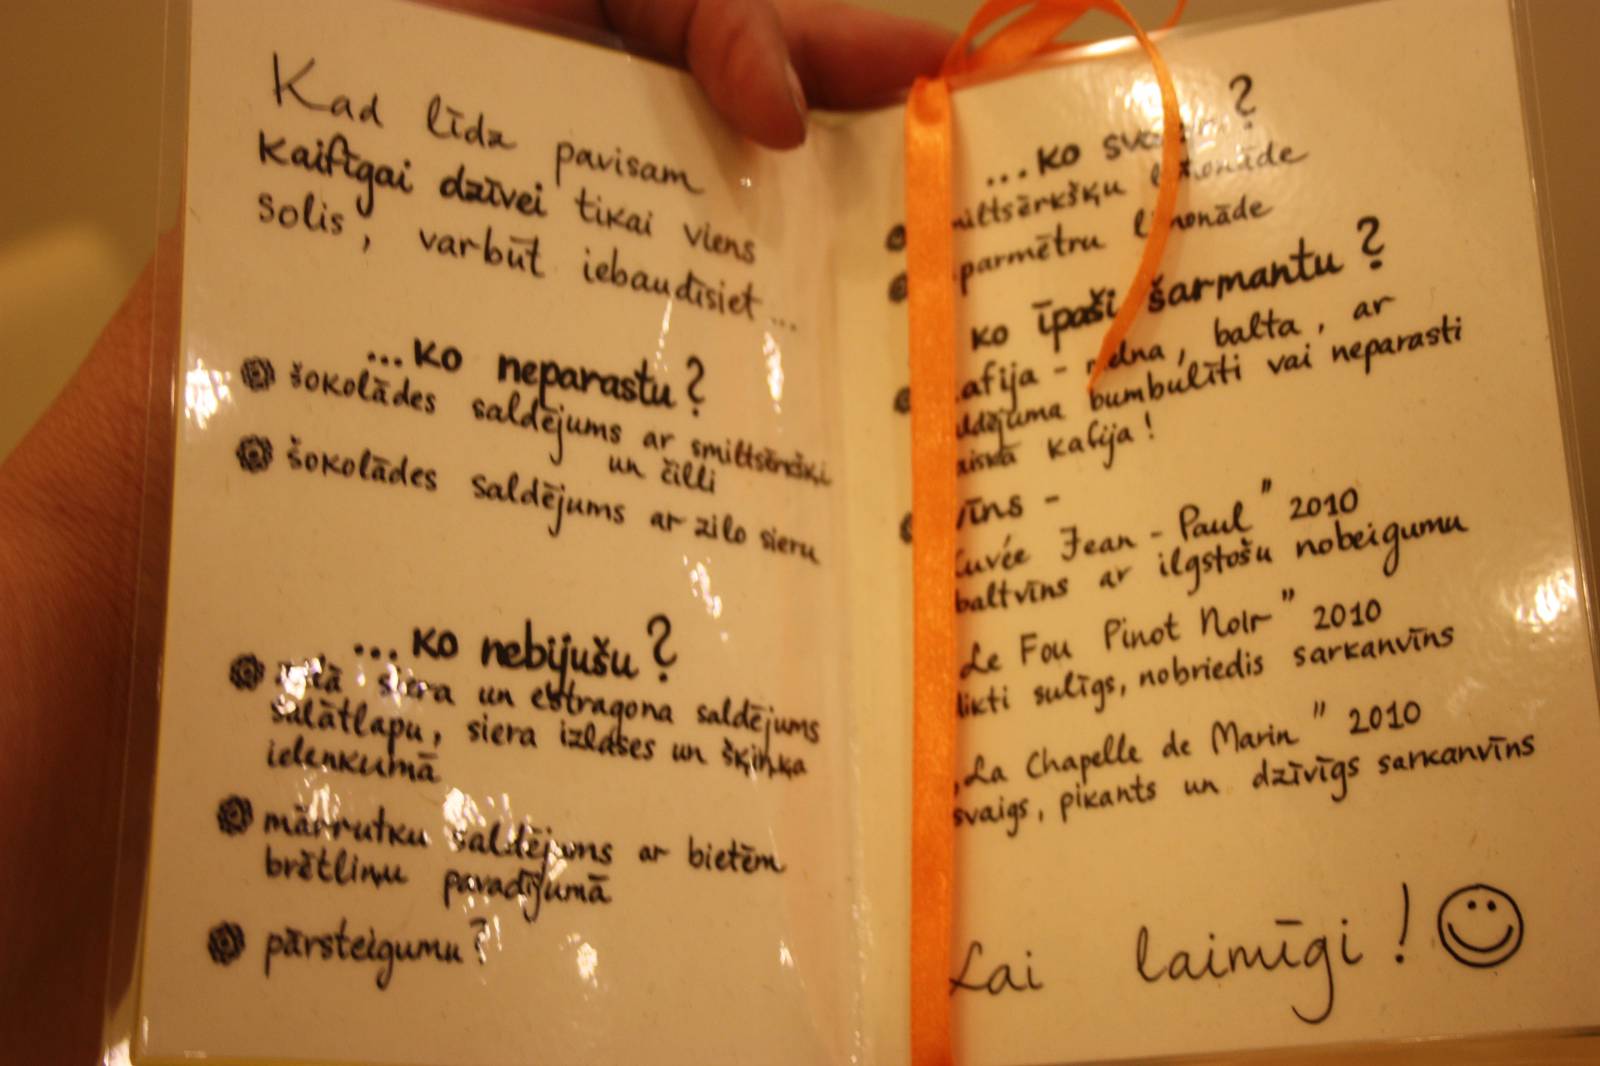 Kad līdz pavisam
kaifīgai dzīvei tikai viens
solis, varbūt iebaudīsiet...
...ko neparastu?
šokolādes saldējums ar smiltsērkšķi
un čilli
šokolādes saldējums ar zilo sieru
...ko nebijušu?
siera un estragona saldējums
salātlapu, siera izlases un šķiņķa
ielenkumā
mārrutku saldējums ar bietēm
brētliņu pavadījumā
pārsteigumu?
...ko ?
smiltsērkšķu limonāde
parmētru limonāde
ko īpaši šarmantu?
kafija - melna, balta, ar
saldējuma bumbulīti vai neparasti
kafija!
vīns -
Cuvée Jean-Paul" 2010
baltvīns ar ilgstošu nobeigumu
Le Fou Pinot Noir" 2010
sulīgs, nobriedis sarkanvīns
„La Chapelle de Marin" 2010
svaigs, pikants un dzīvīgs sarkanvīns
Lai laimīgi!